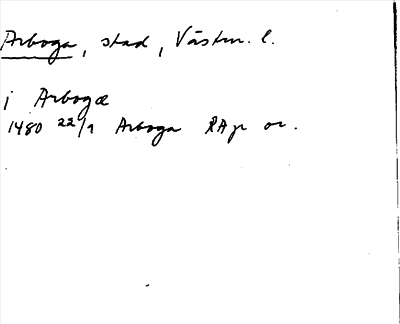 Arboga, stad, Västm. l.
i Arbogæ
1480 22/9 Arboga RAp or.